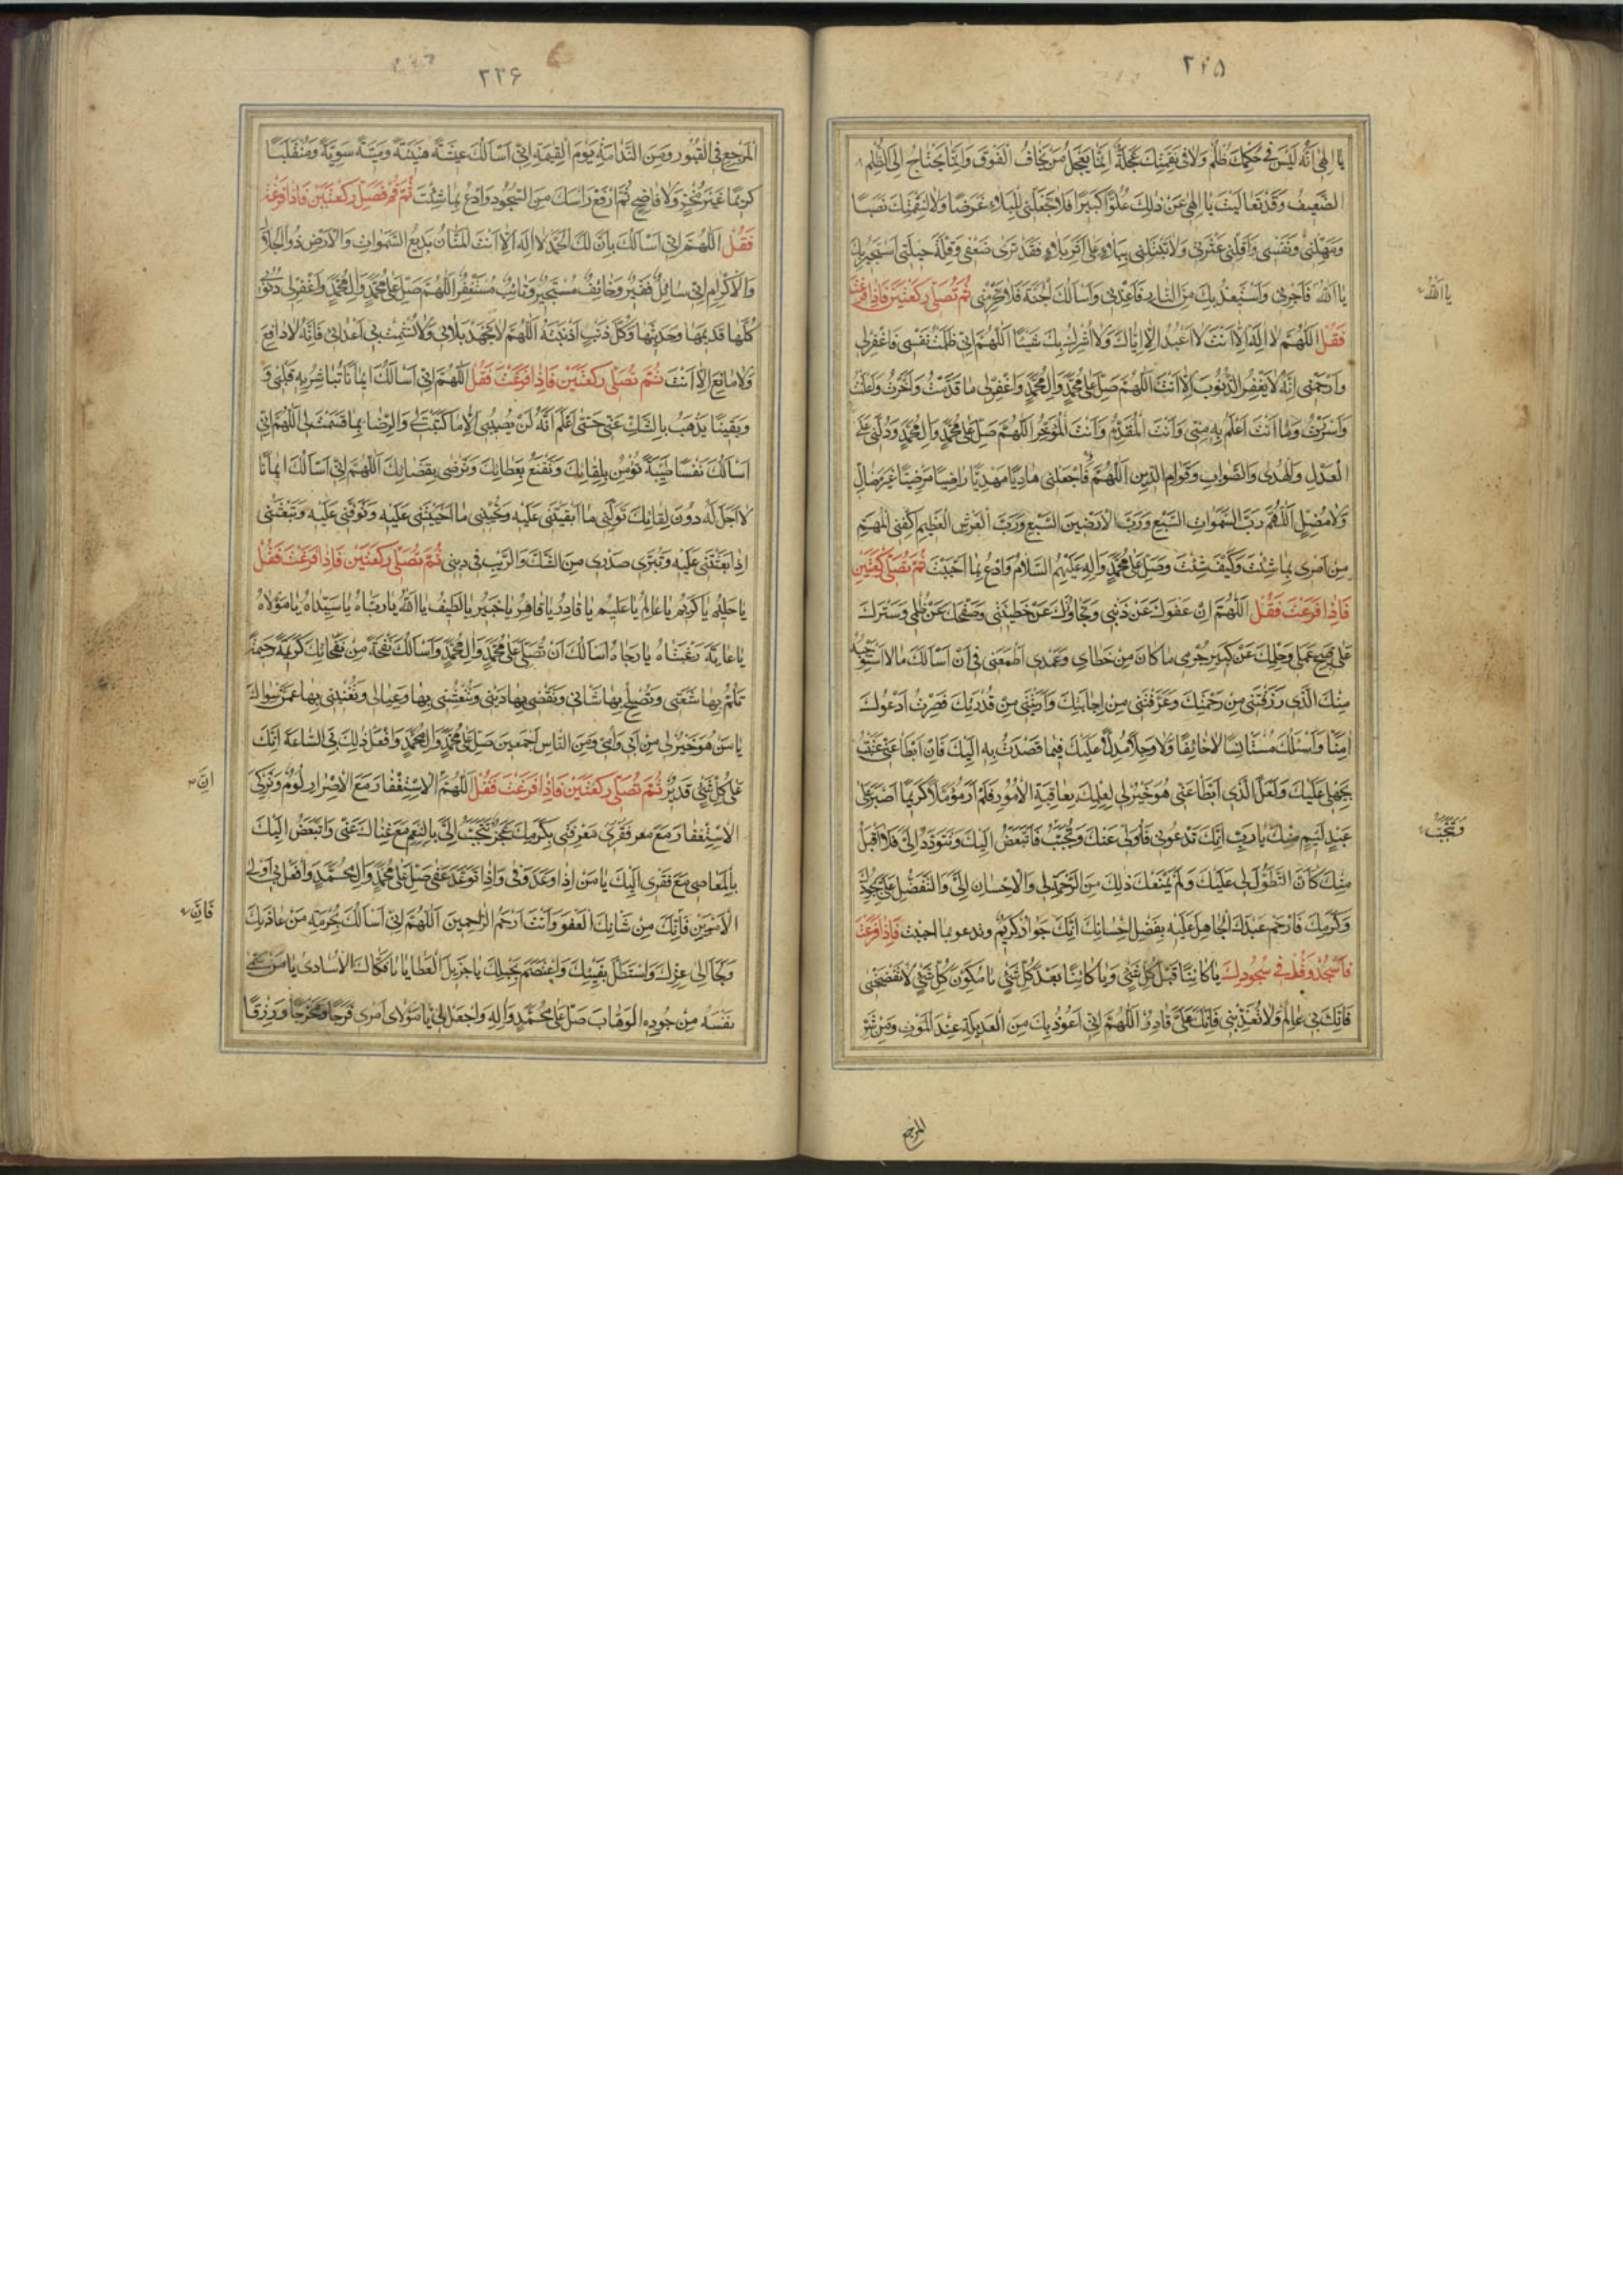 ٢٢٥
يا الهى انه ليس فى حكمك ظلم ولا فى نقمتك عجلة انما يعجل من يخاف الفوت وانما يحتاج الى الظلم
الضعيف وقد تعاليت يا الهى عن ذلك علوا كبيرا فلا تجعلنى للبلاء غرضا ولا لنقمتك نصبا
ومهلنى ونفسنى واقلنى عثرتى ولا تتبعنى ببلاء على اثر بلاء فقد ترى ضعفى وقلة حيلتى استجير بك
يا الله فاجرنى واستعيذ بك من النار فاعذنى واسالك الجنة فلا تحرمنى ثم تصلى ركعتين فاذا فرغت
يا الله
فقل اللهم لا اله الا انت لا اعبد الا اياك ولا اشرك بك شيئا اللهم انى ظلمت نفسى فاغفر لى
وارحمنى انه لا يغفر الذنوب الا انت اللهم صل على محمد وال محمد واغفر لى ما قدمت واخرت واعلنت
واسررت وما انت اعلم به منى وانت المقدم وانت المؤخر اللهم صل على محمد وال محمد ودلنى على
العدل والهدى والصواب وقوام الدين اللهم فاجعلنى هاديا مهديا راضيا مرضيا غير ضال
ولا مضل اللهم رب السموات السبع ورب الارضين السبع ورب العرش العظيم اكفنى المهم
من امرى بما شئت وكيف شئت وصل على محمد واله عليهم السلام وادع بما احببت ثم تصلى ركعتين
فاذا فرغت فقل اللهم ان عفوك عن ذنبى وتجاوزك عن خطيئتى وصفحك عن ظلمى وسترك
على قبيح عملى وحلمك عن كبير جرمى ما كان من خطاى وعمدى اطمعنى فى ان اسالك ما لا استوجبه
منك الذى رزقتنى من رحمتك وعرفتنى من اجابتك واريتنى من قدرتك فصرت ادعوك
امنا واسئلك مستانسا لا خائفا ولا وجلا مدلا عليك فيما قصدت به اليك فان ابطا عنى عتبت
بجهلى عليك ولعل الذى ابطا عنى هو خير لى لعلمك بعاقبة الامور فلم ار مؤملا كريما اصبر على
عبد لئيم منك يا رب انك تدعونى فاولى عنك وتحبب فاتبغض اليك وتتودد الى فلا اقبل
وتتحبب
منك كان التطول لى عليك ولم يمنعك ذلك من الرحمة لى والاحسان الى والتفضل على بجودك
وكرمك فارحم عبدك الجاهل عليه بفضل احسانك انك جواد كريم وتدعو بما احببت فاذا فرغت
فاسجد وقل فى سجودك يا كائنا قبل كل شئ ويا كائنا بعد كل شئ يا مكون كل شئ لا تفضحنى
فانك بى عالم ولا تعذبنى فانك على قادر اللهم انى اعوذ بك من العديلة عند الموت ومن شر
المرجع
٢٢۶
المرجع فى القبور ومن الندامة يوم القيمة انى اسالك عيشة هنيئة وميتة سوية ومنقلبا
كريما غير مخز ولا فاضح ثم ارفع راسك من السجود وادع بما شئت ثم قم فصل ركعتين فاذا فرغت
فقل اللهم انى اسالك بان لك الحمد لا اله الا انت المنان بديع السموات والارض ذو الجلال
والاكرام انى سائل فقير وخائف مستجير وتائب مستغفر اللهم صل على محمد وال محمد واغفر لى ذنوبى
كلها قديمها وحديثها وكل ذنب اذنبته اللهم لا تجهد بلائى ولا تشمت بى اعدائى فانه لا دافع
ولا مانع الا انت ثم تصلى ركعتين فاذا فرغت فقل اللهم انى اسالك ايمانا تباشر به قلبى و
ويقينا يذهب بالشك عنى حتى اعلم انه لن يصيبنى الا ما كتبت لى والرضا بما قسمت لى اللهم انى
اسالك نفسا طيبة تؤمن بلقائك وتقنع بعطائك وترضى بقضائك اللهم انى اسالك ايمانا
لا اجل له دون لقائك تولنى ما ابقيتنى عليه وتحيينى ما احييتنى عليه وتوفنى عليه وتبعثنى
اذا بعثتنى عليه وتبرى صدرى من الشك والريب فى دينى ثم تصلى ركعتين فاذا فرغت فقل
يا حليم يا كريم يا عالم يا عليم يا قادر يا قاهر يا خبير يا لطيف يا الله يا رباه يا سيداه يا مولاه
يا غاية رغبتاه يا رجاه اسالك ان تصلى على محمد وال محمد واسالك نفحة من نفحاتك كريمة رحيمة
تلم بها شعثى وتصلح بها شانى وتقضى بها دينى وتنعشنى بها وعيالى وتغنينى بها عمن سواك
يا من هو خير لى من ابى وامى ومن الناس اجمعين صل على محمد وال محمد وافعل ذلك بى الساعة انك
على كل شئ قدير ثم تصلى ركعتين فاذا فرغت فقل اللهم الاستغفار مع الاصرار لوم وتركى
ان
الاستغفار مع معرفتى بكرمك عجز تتحبب الى بالنعم مع غناك عنى واتبغض اليك
بالمعاصى مع فقرى اليك يا من اذا وعد وفى واذا توعد عفى صل على محمد وال محمد وافعل بى اولى
الامرين فانك من شانك العفو وانت ارحم الراحمين اللهم انى اسالك بحرمة من عاذ بك
فان
ولجا الى عزك واستظل بفيئك واعتصم بحبلك يا جزيل العطايا يا فكاك الاسارى يا من سمى
نفسه من جوده الوهاب صل على محمد واله واجعل لى يا مولاى من امرى فرجا ومخرجا ورزقا